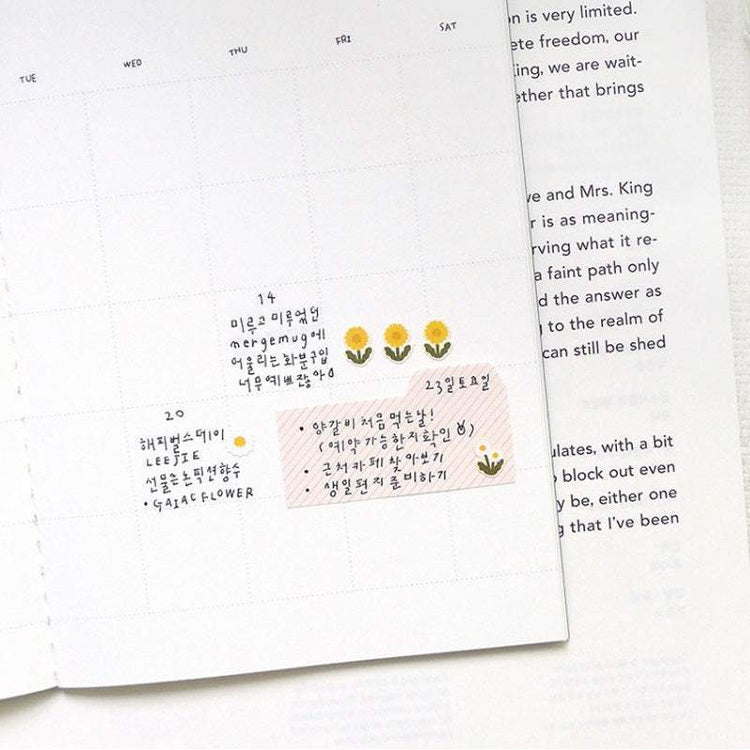 TUE
WED
THU
FRI
SAT
14
미루고 미루었던
mergemug에
어울리는 화분구입
너무예쁘잖아
20
해피벌스데이
LEEJIE
선물은논픽션향수
• GAIAC FLOWER
23일토요일
• 양갈비처음먹는날!
(예약가능한지확인)
• 근처카페찾아보기
• 생일편지준비하기
n is very limited.
ete freedom, our
ing, we are wait-
ether that brings
ve and Mrs. King
r is as meaning-
rving what it re-
a faint path only
d the answer as
to the realm of
can still be shed
ulates, with a bit
block out even
y be, either one
g that I've been